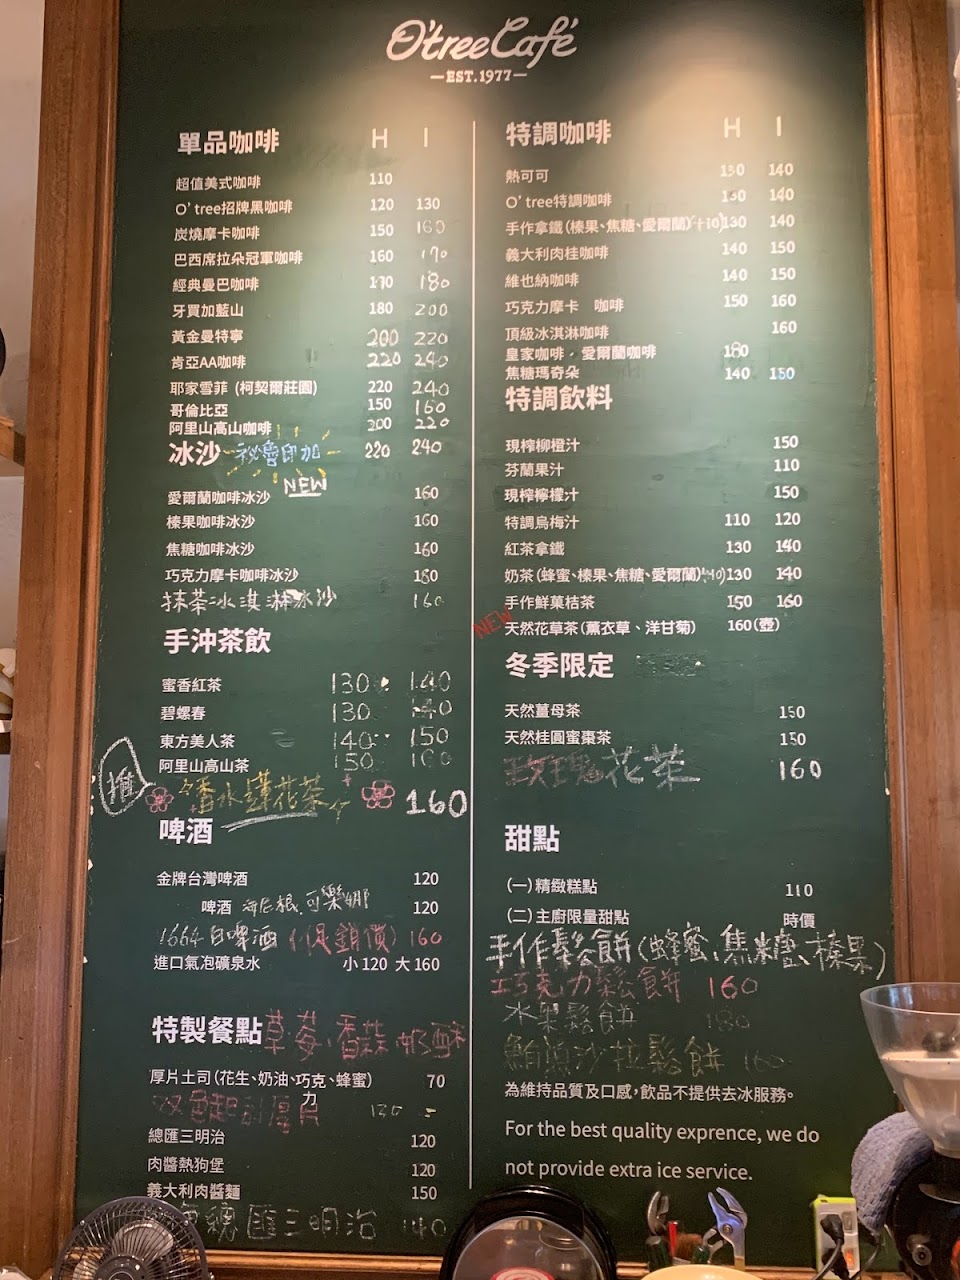 O'treeCafé
EST.1977
單品咖啡 H I
超值美式咖啡 110
O' tree招牌黑咖啡 120 130
炭燒摩卡咖啡 150 160
巴西席拉朵冠軍咖啡 160 170
經典曼巴咖啡 170 180
牙買加藍山 180 200
黃金曼特寧 200 220
肯亞AA咖啡 220 240
耶家雪菲 (柯契爾莊園) 220 240
哥倫比亞 150 160
阿里山高山咖啡 200 220
冰沙 秘魯印加 220 240
NEW
愛爾蘭咖啡冰沙 160
榛果咖啡冰沙 160
焦糖咖啡冰沙 160
巧克力摩卡咖啡冰沙 160
抹茶冰淇淋冰沙 160
手沖茶飲
蜜香紅茶 130 140
碧螺春 130 140
東方美人茶 140 150
阿里山高山茶 150 160
推 香水蓮花茶 160
啤酒
金牌台灣啤酒 120
啤酒 海尼根.可樂娜 120
1664白啤酒 (促銷價) 160
進口氣泡礦泉水 小120 大160
特製餐點 草莓、香蒜、奶酥
厚片土司(花生、奶油、巧克力、蜂蜜) 70
厚片 130
總匯三明治 120
肉醬熱狗堡 120
義大利肉醬麵 150
總匯三明治 140
特調咖啡 H I
熱可可 130 140
O' tree特調咖啡 130 140
手作拿鐵(榛果、焦糖、愛爾蘭)(+10) 130 140
義大利肉桂咖啡 140 150
維也納咖啡 140 150
巧克力摩卡 咖啡 150 160
頂級冰淇淋咖啡 160
皇家咖啡．愛爾蘭咖啡 180
焦糖瑪奇朵 140 150
特調飲料
現榨柳橙汁 150
芬蘭果汁 110
現榨檸檬汁 150
特調烏梅汁 110 120
紅茶拿鐵 130 140
奶茶(蜂蜜、榛果、焦糖、愛爾蘭)(+10) 130 140
手作鮮菓桔茶 150 160
NEW 天然花草茶(薰衣草、洋甘菊) 160(壺)
冬季限定
天然薑母茶 150
天然桂圓蜜棗茶 150
玫瑰花茶 160
甜點
(一)精緻糕點 110
(二)主廚限量甜點 時價
手作鬆餅(蜂蜜、焦糖、榛果)
巧克力鬆餅 160
水果鬆餅 180
鮪魚沙拉鬆餅 160
為維持品質及口感，飲品不提供去冰服務。
For the best quality exprence, we do
not provide extra ice service.